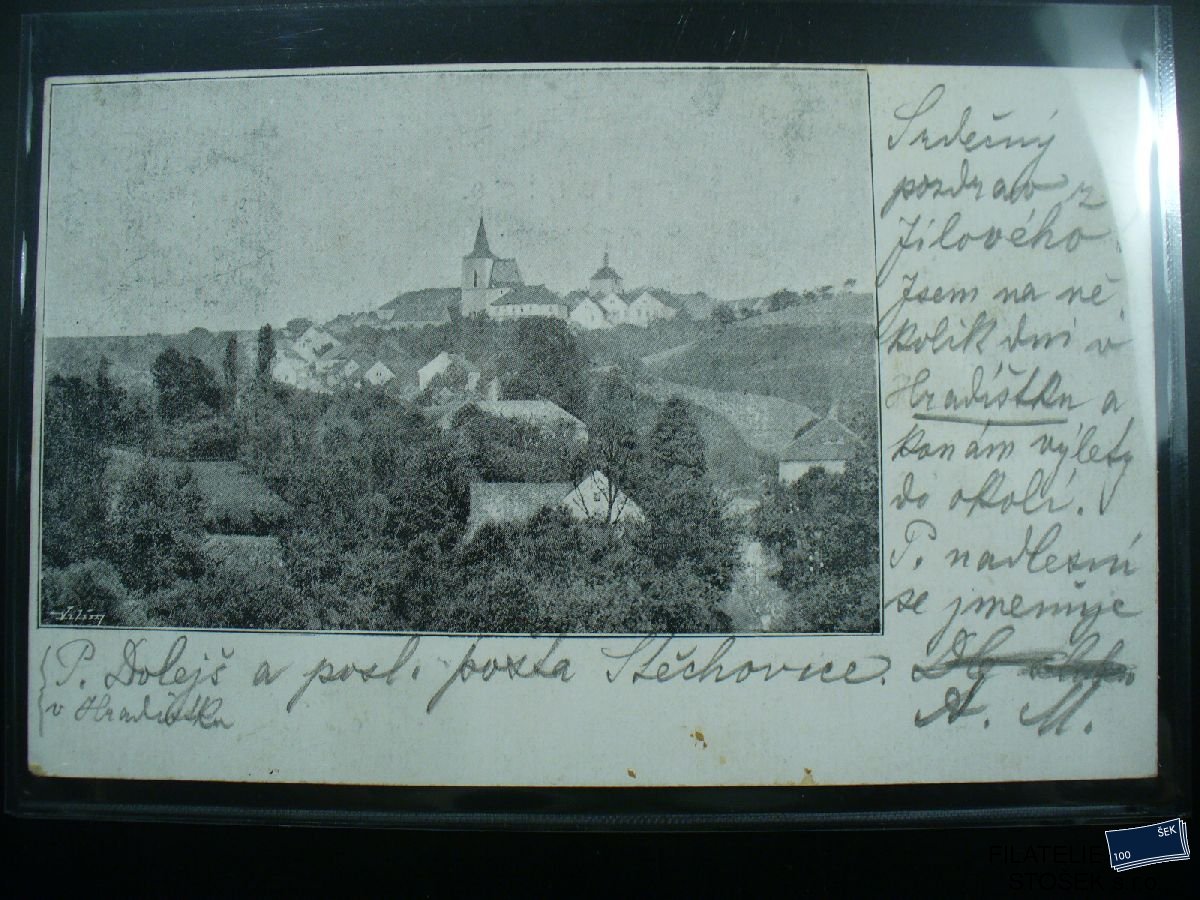 Srdečný
pozdrav z
Jílového.
Jsem na ně
kolik dní v
Hradištku a
konám výlety
do okolí.
P. nadlesní
se jmenuje
P. Dolejš a posl. pošta Štěchovice.
v Hradištku
A. M.
100 ŠEK
FILATELIE
STOŠEK s.r.o.